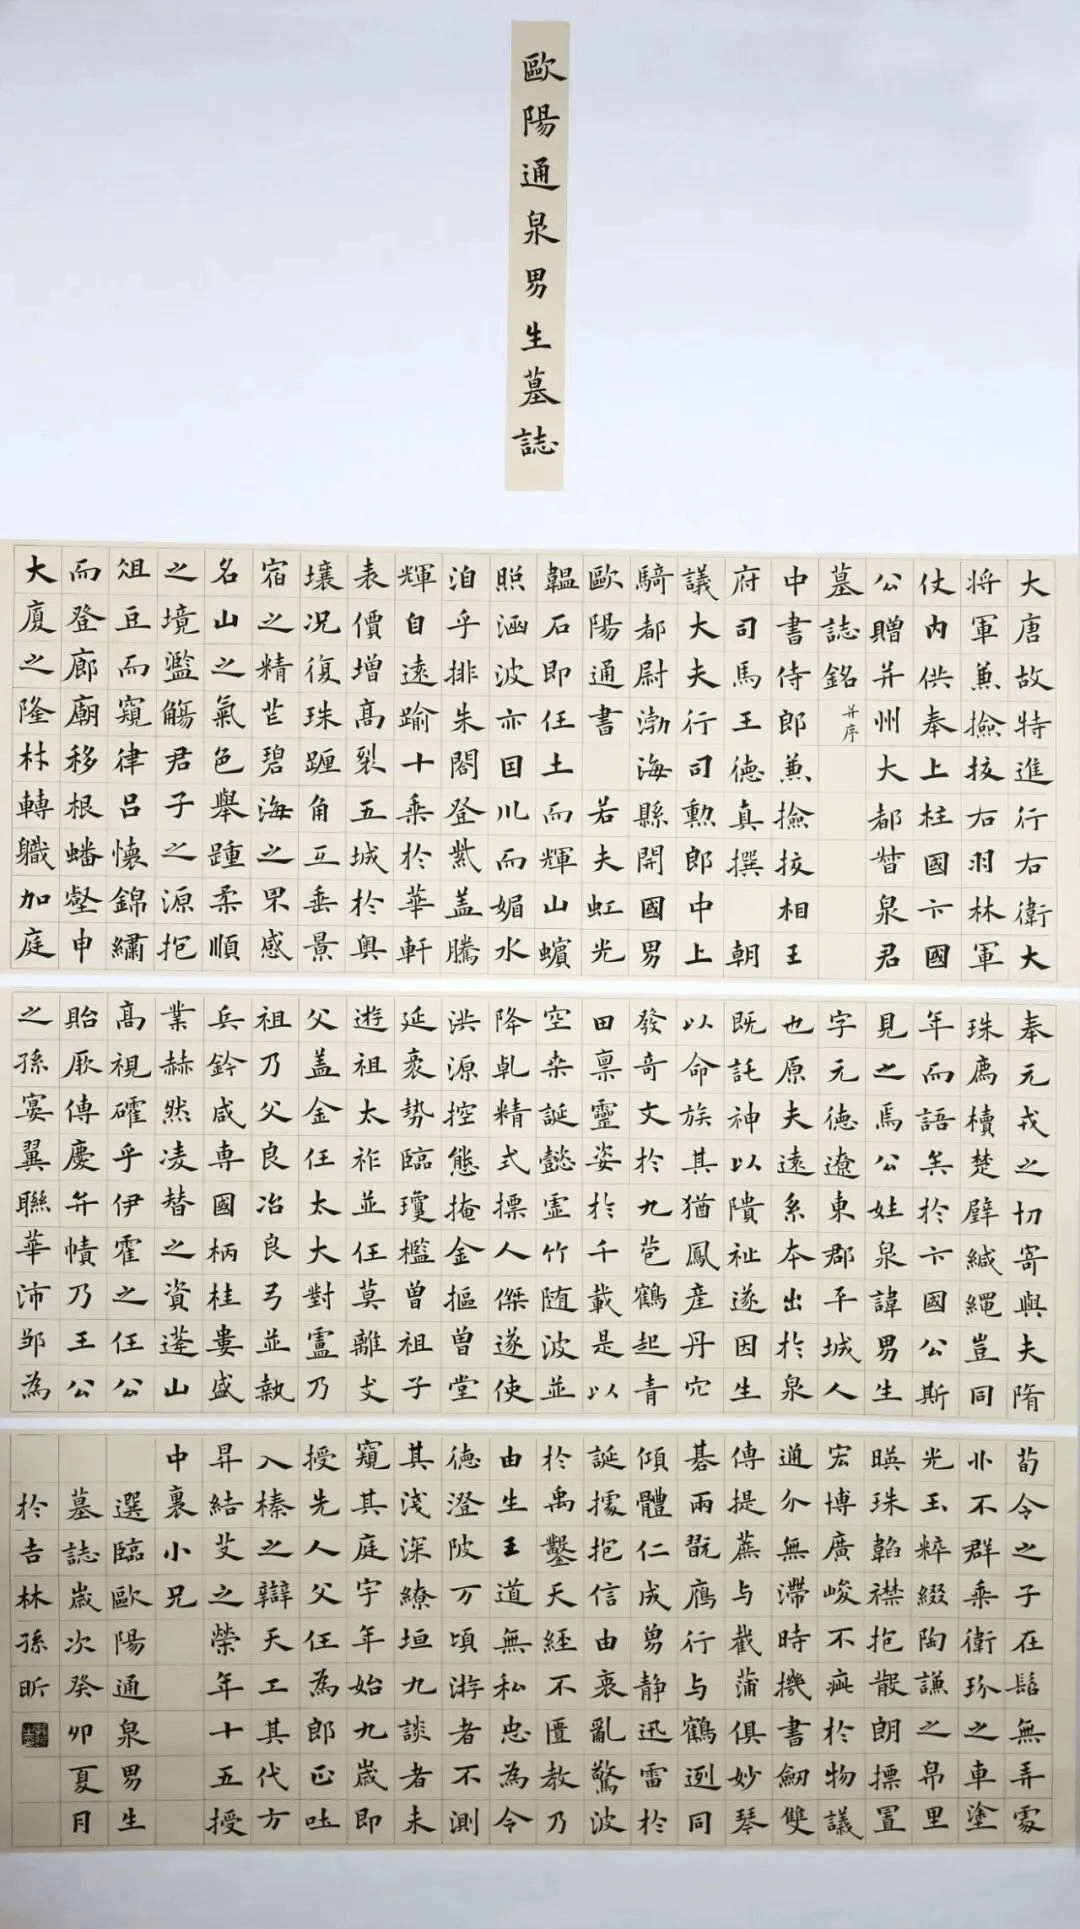 歐陽通泉男生墓誌
大唐故特進行右衛大
将軍兼撿挍右羽林軍
仗内供奉上柱國卞國
公贈并州大都督泉君
墓誌銘并序
中書侍郎兼撿挍相王
府司馬王德真撰 朝
議大夫行司勳郎中上
騎都尉渤海縣開國男
歐陽通書 若夫虹光
韞石即任土而輝山蠙
照涵波亦因川而媚水
洎乎排朱閣登紫蓋騰
輝自遠踰十乘於華軒
表價增高裂五城於奥
壤况復珠躔角亙垂景
宿之精芒碧海之杲感
名山之氣色舉踵柔順
之境濫觴君子之源抱
俎豆而窺律吕懷錦繡
而登廊廟移根蟠壑申
大廈之隆材轉職加庭
奉元戎之切寄與夫隋
珠薦櫝楚璧緘繩豈同
年而語矣於卞國公斯
見之焉公姓泉諱男生
字元德遼東郡平城人
也原夫遠系本出於泉
既託神以隤祉遂因生
以命族其猶鳳產丹穴
發奇文於九苞鶴起青
田禀靈姿於千載是以
空桒誕懿虛竹随波並
降乹精式摽人傑遂使
洪源控態掩金摳曾堂
延袤勢臨瓊檻曾祖子
遊祖太祚並任莫離支
父盖金任太大對盧乃
祖乃父良冶良弓並執
兵鈐咸専國柄桂婁盛
業赫然凌替之資蓬山
高視確乎伊霍之任公
貽厥傳慶弁幘乃王公
之孫宴翼聯華沛鄒為
荀令之子在髫無弄處
丱不群乘衛玠之車塗
光玉粹綴陶謙之帛里
暎珠韜襟抱散朗摽置
宏博廣峻不疵於物議
通介無滯時機書劒雙
傳提蔗与截蒲俱妙琴
碁兩翫鴈行与鶴迾同
傾體仁成勇静迅雷於
誕據抱信由衷亂驚波
於禹鑿天經不匱教乃
由生王道無私忠為令
德澄陂万頃游者不測
其淺深繚垣九談者未
窺其庭宇年始九歲即
授先人父任為郎正吐
入榛之辯天工其代方
昇結艾之榮年十五授
中裏小兄
選臨歐陽通泉男生
墓誌歲次癸卯夏月
於吉林孫昕